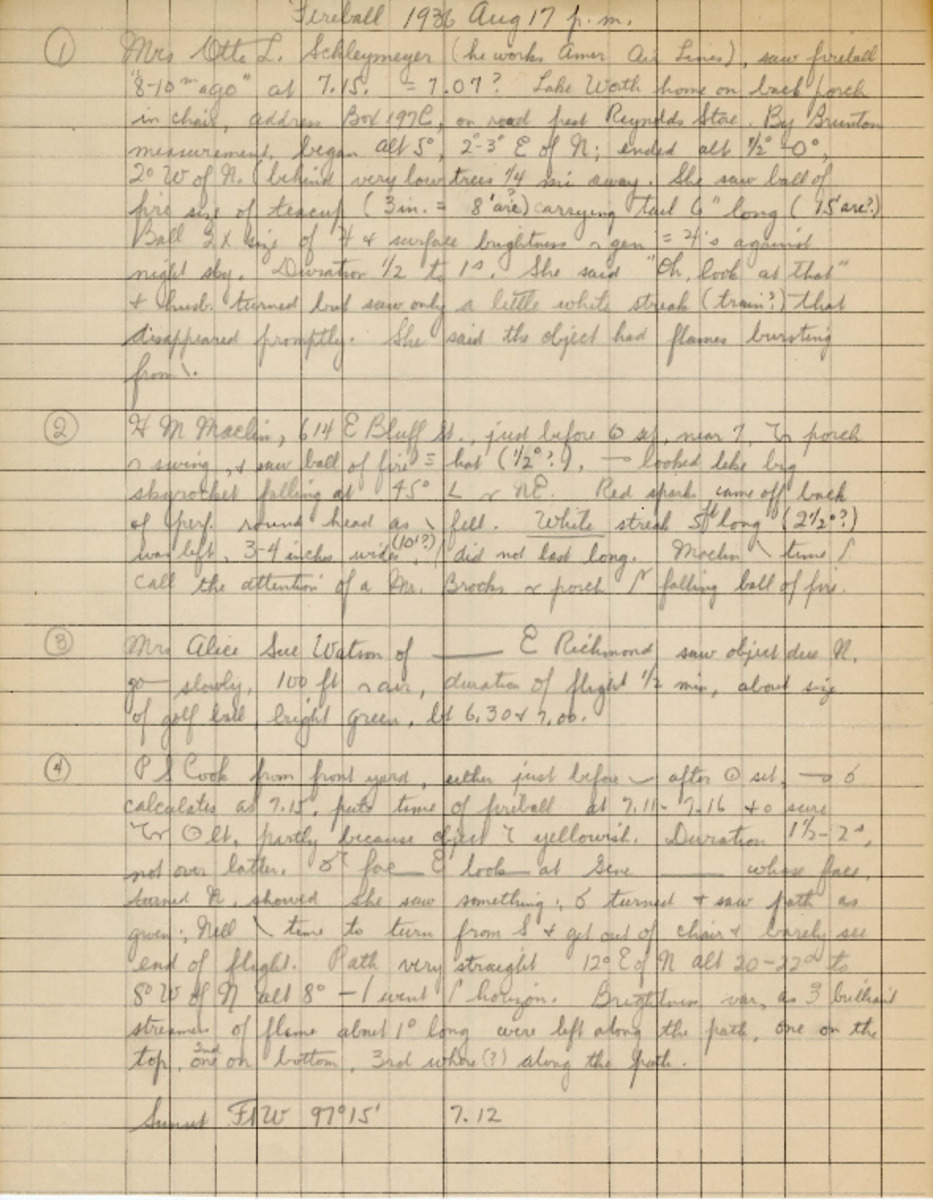 Fireball 1936 Aug 17 p.m.
① Mrs Otto L. Schleymeyer (he works Amer Air Lines), saw fireball
"8-10ᵐ ago" at 7.15. = 7.07? Lake Worth home on back porch
in chair, address Box 197C, on road past Reynolds Store. By Brunton
measurement, began alt 5°, 2°-3° E of N; ended alt ½°-0°,
2° W of N. (behind very low trees ¼ mi away. She saw ball of
fire size of teacup (3in. = 8' arc?) carrying tail 6" long (15' arc?)
Ball 2x size of ♃ & surface brightness gen = ♃'s against
night sky. Duration ½ to 1ˢ. She said "Oh, look at that"
& husb. turned but saw only a little white streak (train?) that
disappeared promptly. She said the object had flames bursting
from \.
② H M Maclin, 614 E Bluff St., just before ⊙ set, near 7, porch
swing, & saw ball of fire = hat (½°?), — looked like big
skyrocket falling at 45° L NE. Red sparks came off back
of perf. round head as \ fell. White streak 5ft long (2½°?)
was left, 3-4 inches wide (10'?), did not last long. Maclin \ time
call the attention of a Mr. Brooks porch falling ball of fire.
③ Mrs Alice Sue Watson of ___ E Richmond saw object due N.
go— slowly, 100 ft air, duration of flight ½ min, about size
of golf ball, bright green, bt 6.30 & 7.00.
④ P S Cook from front yard, either just before after ⊙ set, —
calculates as 7.15, puts time of fireball at 7.11-7.16 sure
⊙ lt, partly because object yellowish. Duration 1½-2ˢ,
not over latter. fac— E look— at Gene ___ whose face,
turned N, showed she saw something; turned & saw path as
given; Nell \ time to turn from S & get out of chair & barely see
end of flight. Path very straight 12° E of N alt 20-22° to
8° W of N alt 8° — went horizon. Brightness var, as 3 brilliant
streamers of flame about 1° long were left along the path, one on the
top, 2nd one on bottom, 3rd where (?) along the path.
Sunset FtW 97°15' 7.12